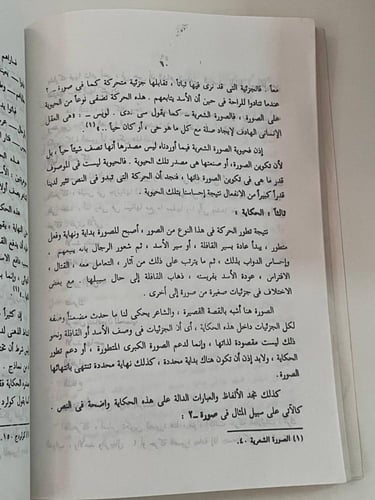 ٦٠
معاً . فالجزئية التى قد نرى فيها ثباتاً ، تقابلها جزئية متحركة كما فى صورة ــ ٢
عندما تنادوا للراحة فى حين أن الأسد يتابعهم . هذه الحركة تضفى نوعاً من الحيوية
على الصورة ، فالصورة الشعرية ــ كما يقول سى . دى . لويس ــ : « هى العقل
الإنسانى الهادف لإيجاد صلة مع كل ما هو حى ، أو كان حياً .. »(١) .
إذن فحيوية الصورة الشعرية فيما أوردناه ليس مصدرها أنها تصف شيئاً حياً ، بل
لأن تكوين الصورة، أو صنعتها هى مصدر تلك الحيوية . فالحيوية ليست فى الموصوف
قدر ما هى فى تكوين الصورة ذاتها ، فنجد أن الحركة التى تبدو فى النص تثير لدينا
قدراً كبيراً من الانفعال نتيجة إحساسنا بتلك الحيوية .
ثالثاً ، الحكاية :
نتيجة تطور الحركة فى هذا النوع من الصور ، أصبح للصورة بداية ونهاية وفعل
متطور ، يبدأ عادة بسير القافلة ، أو سير الأسد ، ثم شعور الرجال بأنه يتبعهم ،
وإحساس الدواب بذلك ، ثم ما يترتب على ذلك من آثار ، التعامل معه ، القتال ،
الافتراس ، عودة الأسد بفريسته ، ذهاب القافلة إلى حال سبيلها . مع بعض
الاختلاف فى جزئيات صغيرة من صورة إلى أخرى .
الصورة هنا أشبه بالقصة القصيرة ، والشاعر يحكى لنا ما حدث مضمناً وصفه
لكل الجزئيات داخل هذه الحكاية ، أى أن الجزئيات فى وصف الأسد أو القافلة ونحو
ذلك ليست مقصودة لذاتها ، وإنما لدعم الصورة الكبرى المتطورة ، أو دعم تطور
الحكاية ، ولابد إذن أن تكون هناك بداية محددة ، كذلك نهاية محددة تنتهى بانتهائها
الصورة .
كذلك نجد الألفاظ والعبارات الدالة على هذه الحكاية واضحة فى النص .
كالآتى على سبيل المثال فى صورة ــ ٢ :
(١) الصورة الشعرية ٤٠.